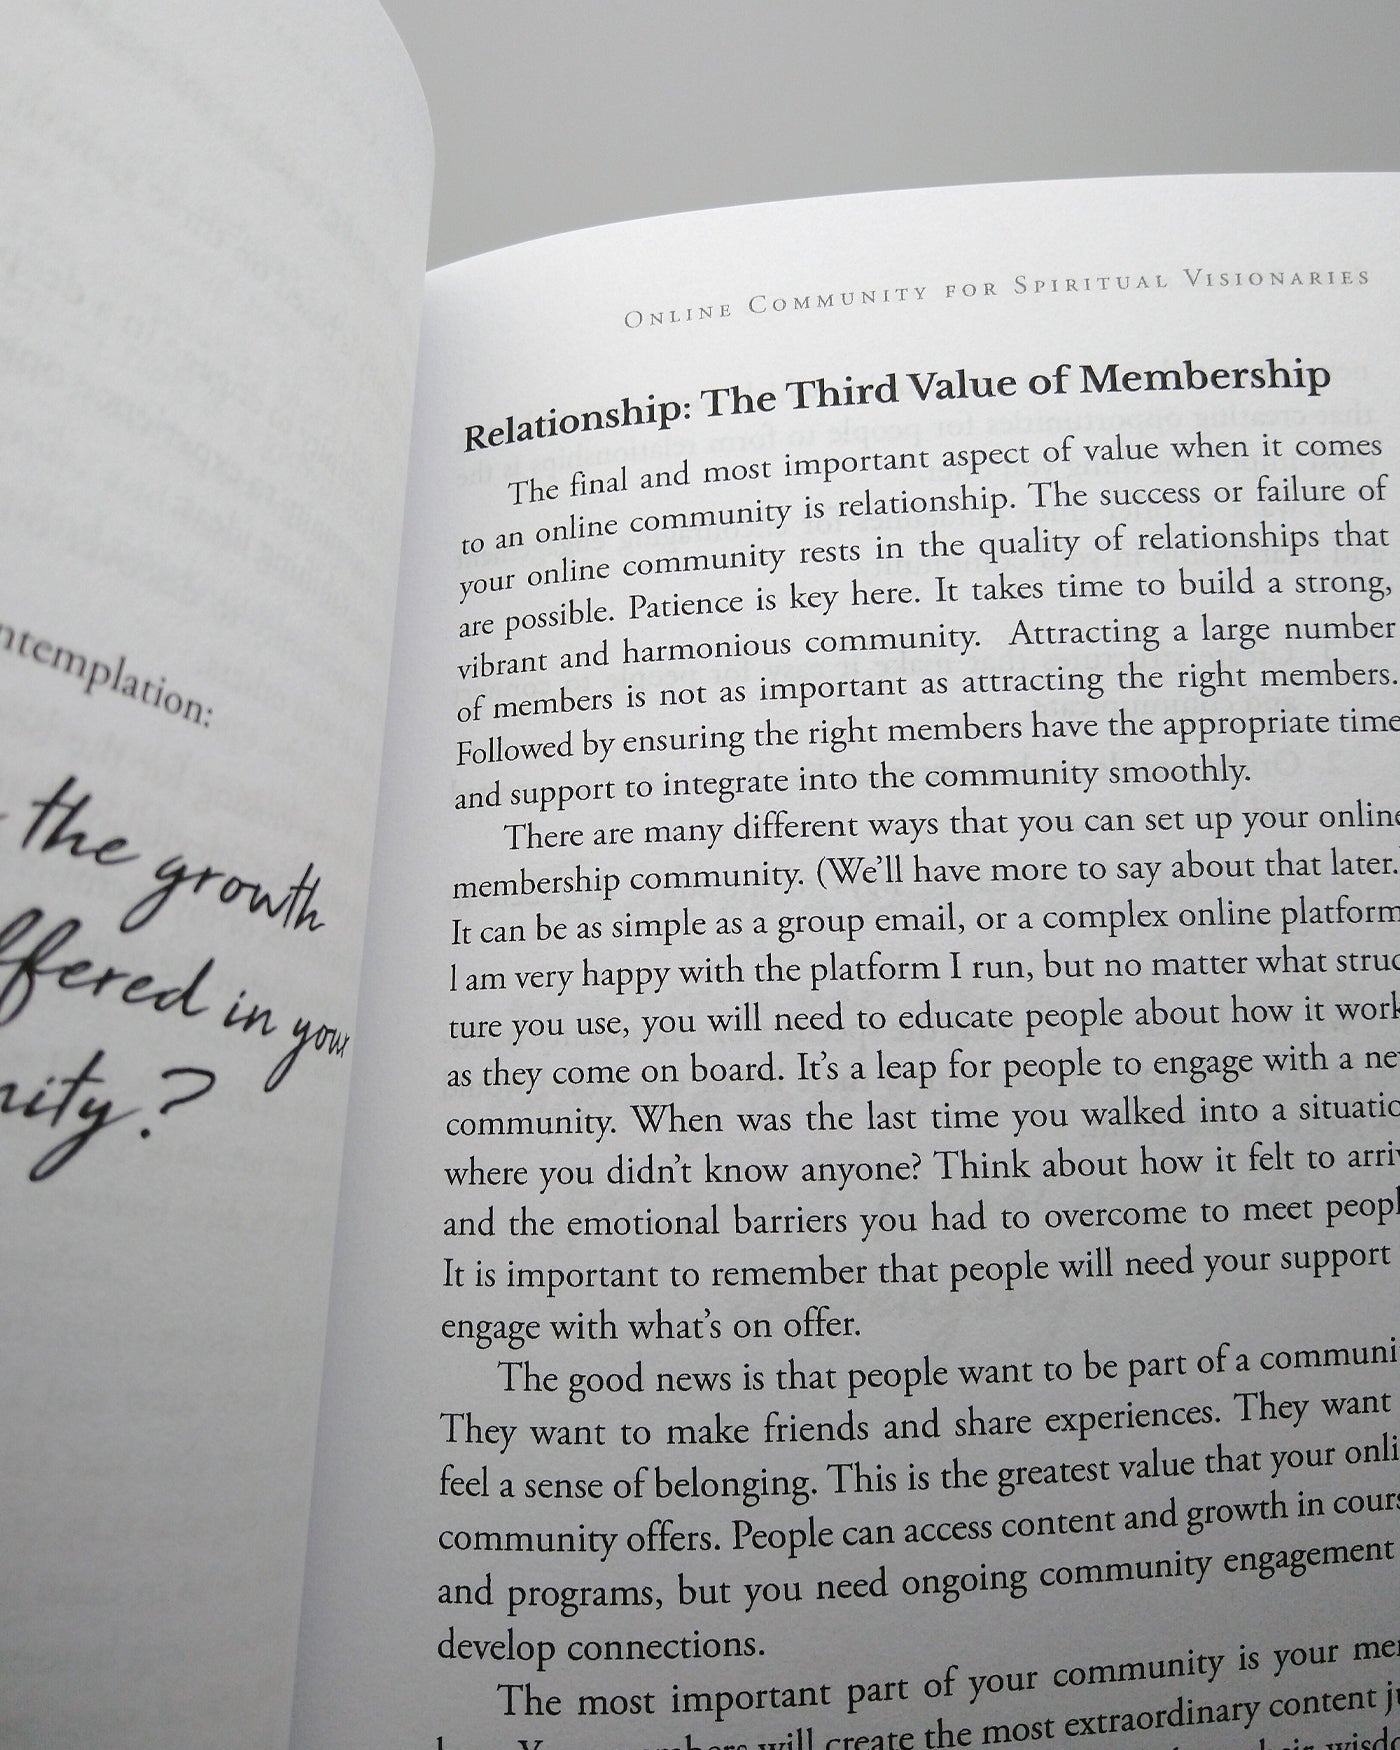 the growth
in your
ONLINE COMMUNITY FOR SPIRITUAL VISIONARIES
Relationship: The Third Value of Membership
The final and most important aspect of value when it comes
to an online community is relationship. The success or failure of
your online community rests in the quality of relationships that
are possible. Patience is key here. It takes time to build a strong,
vibrant and harmonious community. Attracting a large number
of members is not as important as attracting the right members.
Followed by ensuring the right members have the appropriate time
and support to integrate into the community smoothly.
There are many different ways that you can set up your online
membership community. (We'll have more to say about that later.
It can be as simple as a group email, or a complex online platform
I am very happy with the platform I run, but no matter what struc
ture you use, you will need to educate people about how it work
as they come on board. It's a leap for people to engage with a ne
community. When was the last time you walked into a situatio
where you didn't know anyone? Think about how it felt to arriv
and the emotional barriers you had to overcome to meet peopl
It is important to remember that people will need your support
engage with what's on offer.
The good news is that people want to be part of a communi
They want to make friends and share experiences. They want
feel a sense of belonging. This is the greatest value that your onli
community offers. People can access content and growth in cours
and programs, but you need ongoing community engagement
develop connections.
The most important part of your community is your me
will create the most extraordinary content